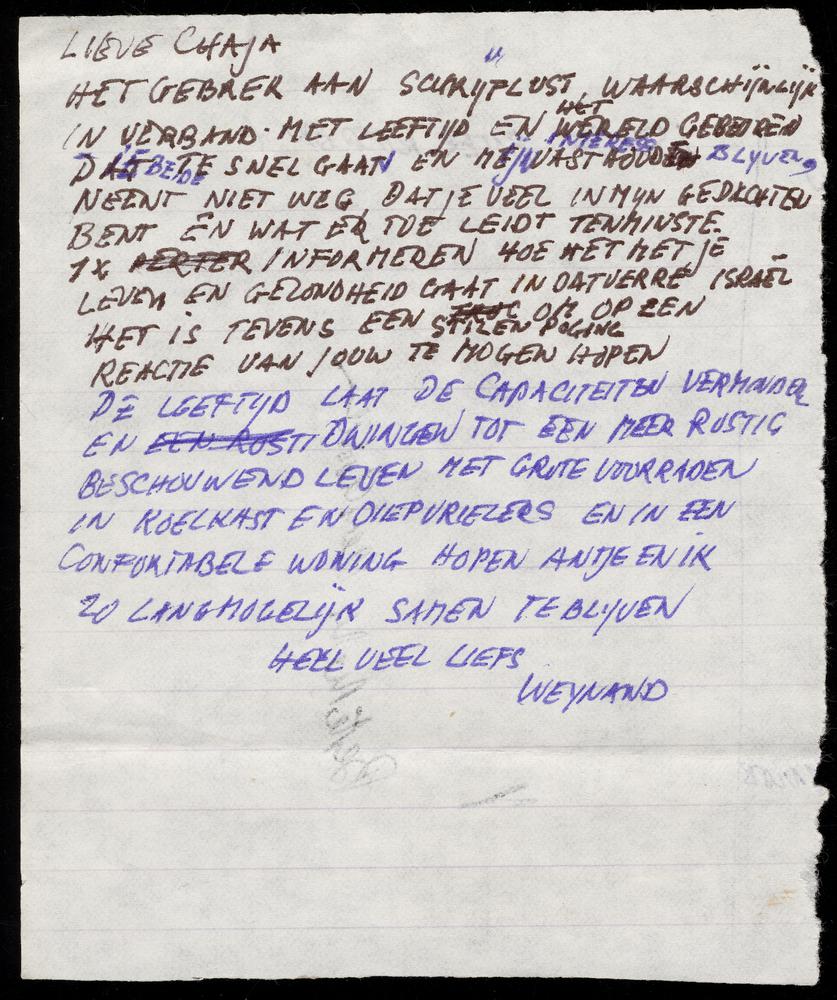 LIEVE CHAJA
HET GEBREK AAN SCHRYFLUST, WAARSCHIJNLIJK
IN VERBAND MET LEEFTIJD EN HET WERELD GEBEUREN
DAT BEIDE TE SNEL GAAN EN MIJN INTERESSE VAST HOUDEN BLYVEN,
NEEMT NIET WEG DAT JE VEEL IN MYN GEDACHTEN
BENT EN WAT ER TOE LEIDT TENMINSTE
1X INFORMEREN HOE HET MET JE
LEVEN EN GEZONDHEID GAAT IN DAT VERRE ISRAËL
HET IS TEVENS EEN STILLEN POGING OM OP EEN
REACTIE VAN JOUW TE MOGEN HOPEN
DE LEEFTYD LAAT DE CAPACITEITEN VERMINDER
EN DWINGEN TOT EEN MEER RUSTIG
BESCHOUWEND LEVEN MET GROTE VOORRADEN
IN KOELKAST EN DIEPVRIEZERS EN IN EEN
COMFORTABELE WONING HOPEN ANTJE EN IK
ZO LANG MOGELIJK SAMEN TE BLIJVEN
HEEL VEEL LIEFS
WEYNAND